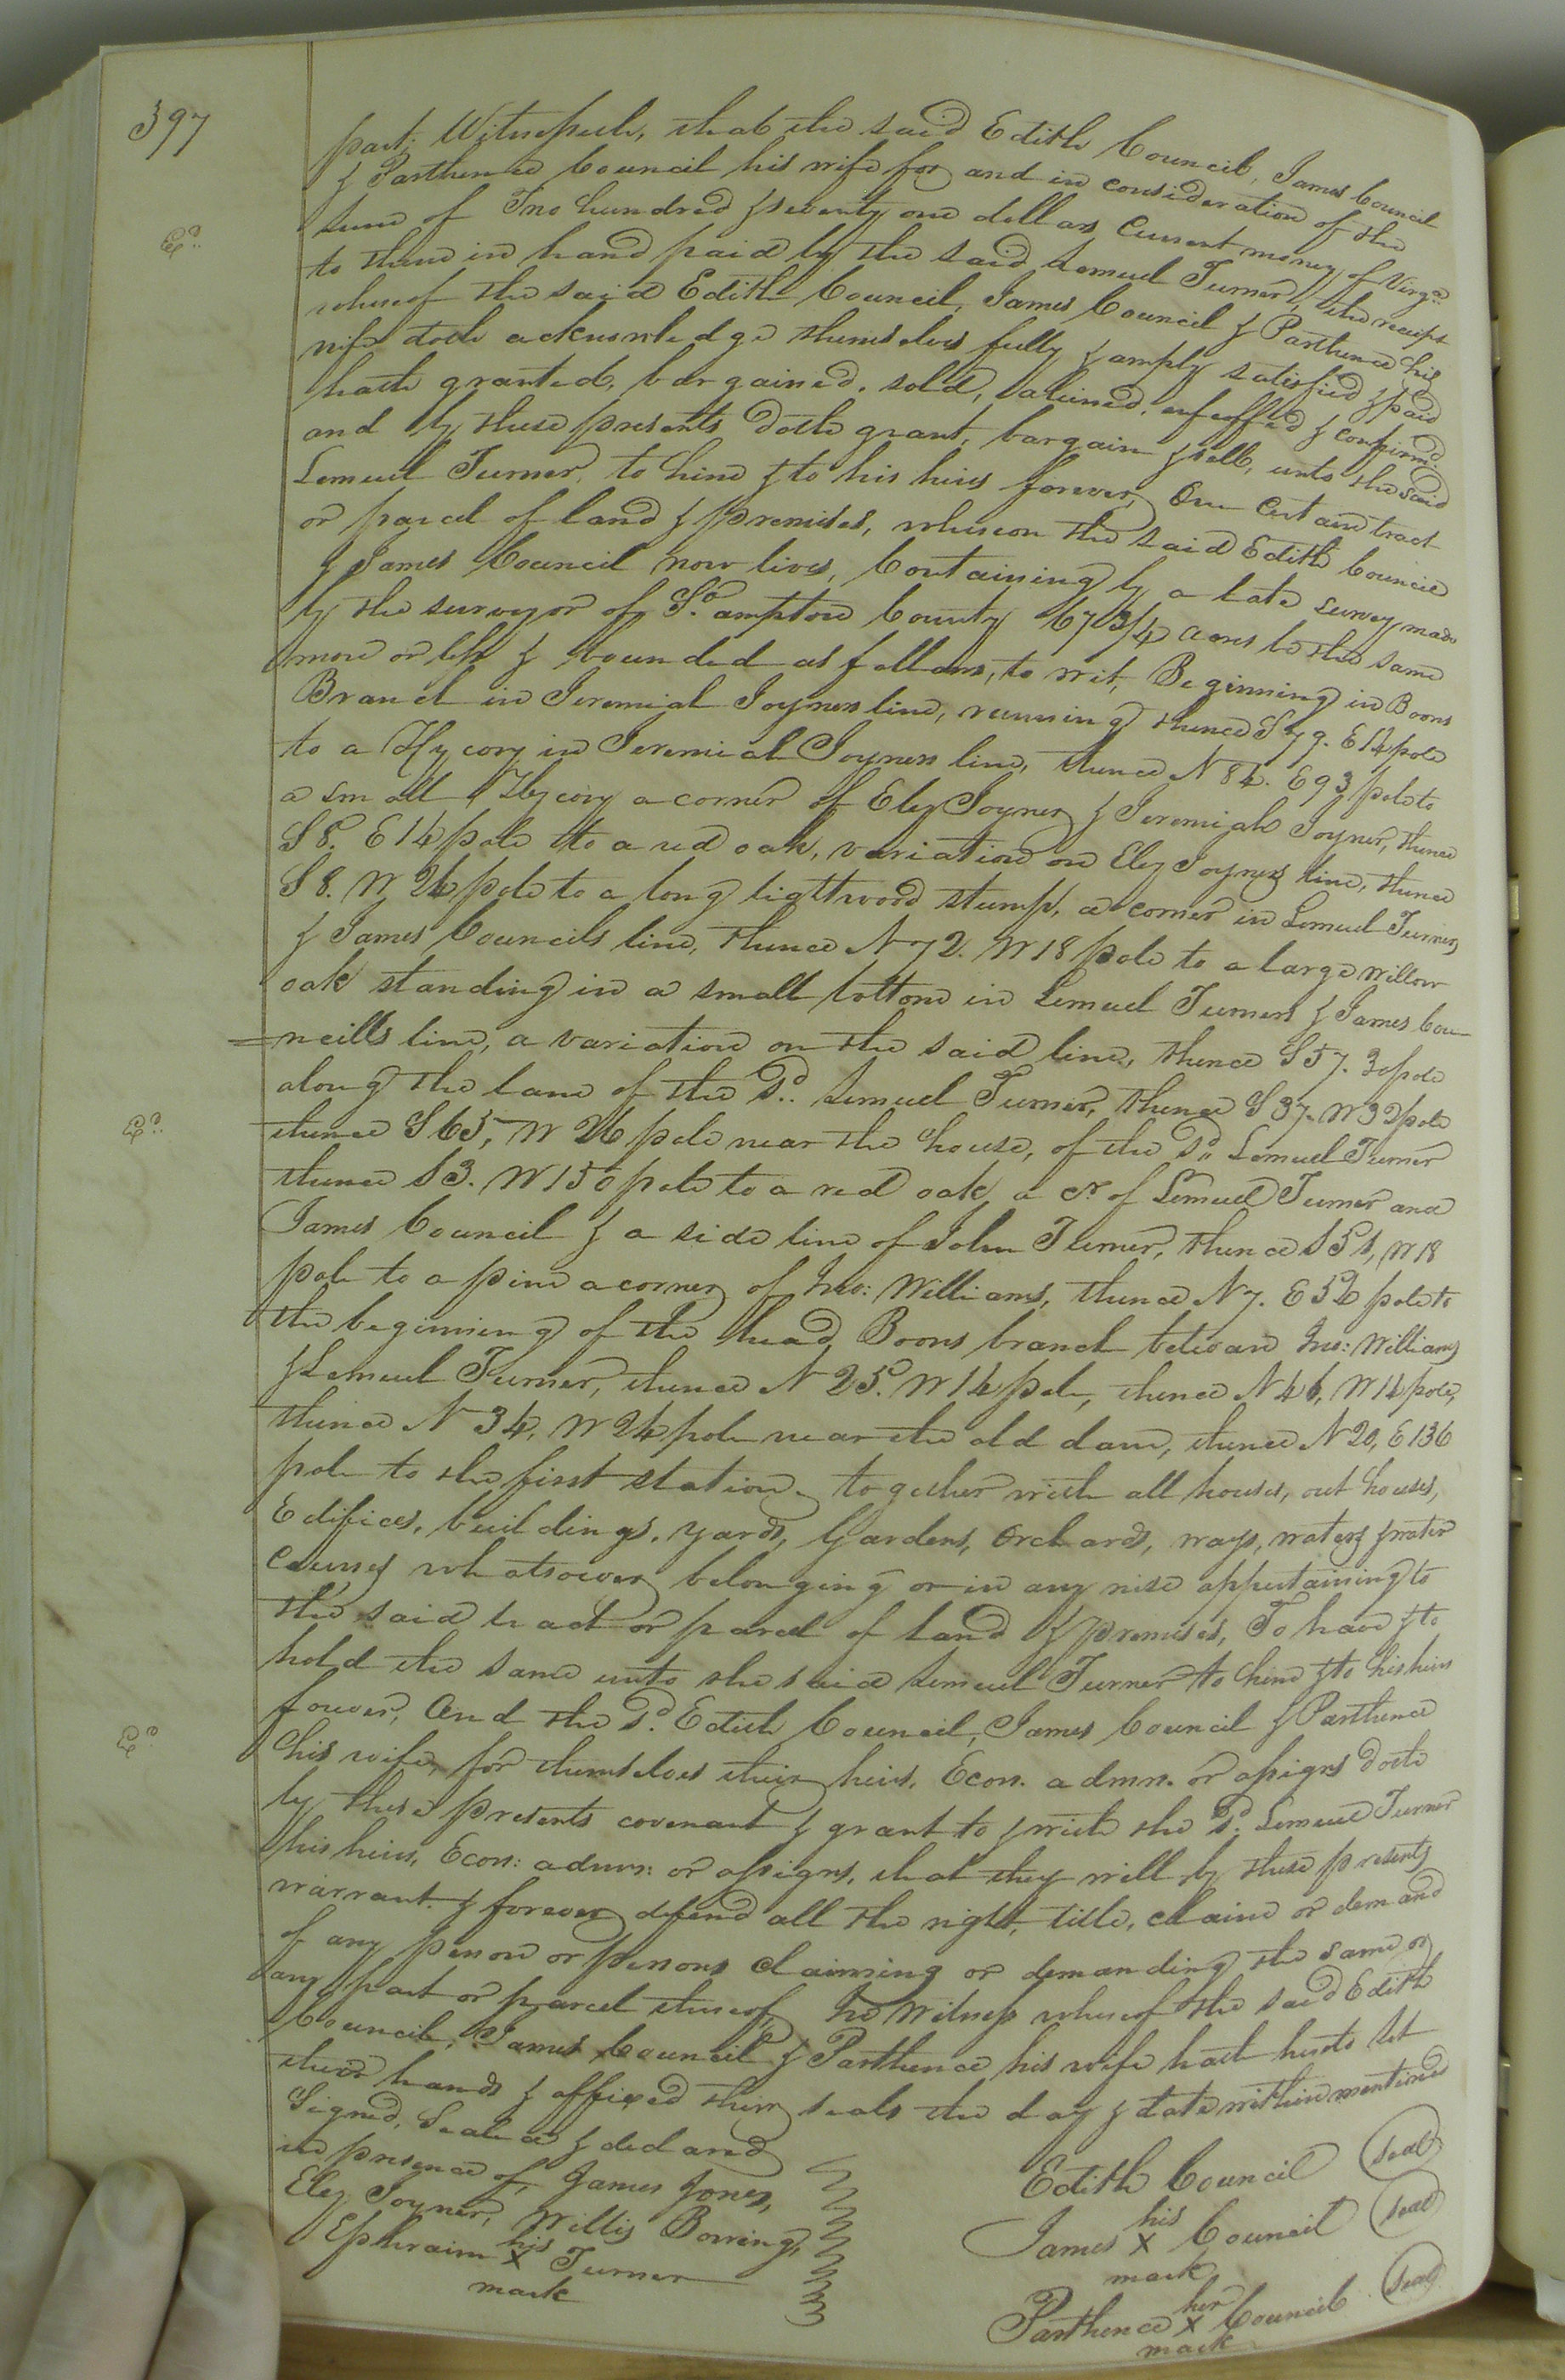 397
part; Witnesseth, that the said Edith Council, James Council
& Parthena Council his wife for and in consideration of the
sum of Two hundred & seventy one dollars Current money of Virga.
to them in hand paid by the said Lemuel Turner, the receipt
whereof the said Edith Council, James Council & Parthena his
wife doth acknowledge themselves fully & amply satisfied & paid
hath granted, bargained, sold, aliened, enfeoffed & confirmd.
and by these presents doth grant, bargain & sell, unto the said
Lemuel Turner, to him & to his heirs forever, One Certain tract
or parcel of land & premises, whereon the said Edith Council
& James Council now lives, Containing by a late survey made
by the surveyor of So.ampton County 67 3/4 acres be the same
more or less & bounded as follows, to wit, Beginning in Boons
Branch in Jeremiah Joyners line, running thence S 79. E 14 pole
to a Hycory in Jeremiah Joyners line, thence N 84. E 93 pole to
a small Hycory a corner of Eley Joyner & Jeremiah Joyner, thence
S 8. E 14 pole to a red oak, variation on Eley Joyners line, thence
S 8. W 26 pole to a long lightwood stump, a corner in Lemuel Turners
& James Councils line, thence N 72. W 18 pole to a large willow
oak standing in a small bottom in Lemuel Turners & James Cou-
=ncills line, a variation on the said line, thence S 57. 30 pole
along the lane of the sd. Lemuel Turner, thence S 37. W 32 pole
thence S 65, W 26 pole near the house, of the sd. Lemuel Turner
thence S 3. W 150 pole to a red oak, a cr. of Lemuel Turner and
James Council & a side line of John Turner, thence S 51, W 18
pole to a pine a corner of Jno: Williams, thence N 7. E 52 pole to
the beginning of the head Boons branch between Jno: Williams
& Lemuel Turner, thence N 25. W 14 pole, thence N 46, W 14 pole,
thence N 34, W 24 pole near the old dam, thence N 20, E 136
pole to the first station together with all houses, out houses,
Edifices, buildings, yards, Gardens, Orchards, ways, waters & water
Courses whatsoever belonging or in any wise appertaining to
the said tract or parcel of land & premises, To have & to
hold the same unto the said Lemuel Turner to him & to his heirs
forever, And the sd. Edith Council, James Council & Parthena
his wife, for themselves their heirs, Ecors. admrs. or assigns doth
by these presents covenant & grant to & with the sd. Lemuel Turner
his heirs, Ecors: admrs: or assigns, that they will by these presents
warrant & forever defend all the right, title, claim or demand
of any person or persons claiming or demanding the same or
any part or parcel thereof, In Witness whereof the said Edith
Council, James Council & Parthena his wife hath hereto set
their hands & affixed their seals the day & date within mentioned
Signed, Sealed & deld and
in presence of, James Jones,
Eley Joyner, Willis Bowing,
Ephraim his X mark Turner
Edith Council (seal)
James his X mark Council (seal)
Parthena her X mark Council (seal)